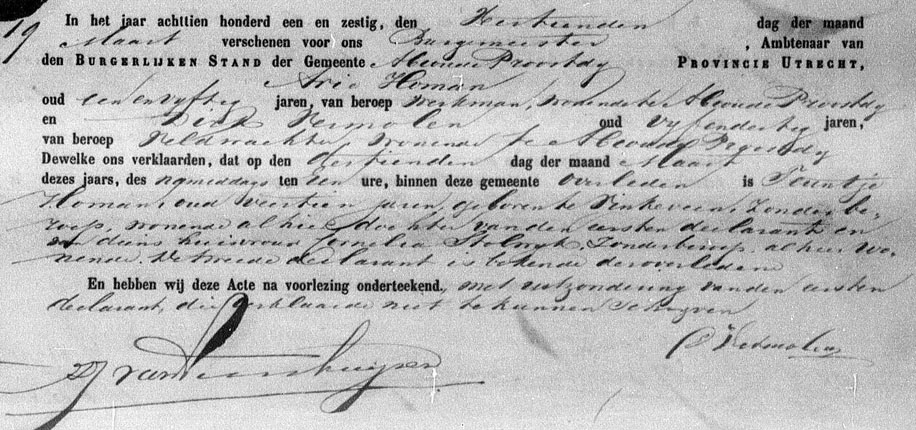 19
In het jaar achttien honderd een en zestig, den Zestienden dag der maand
Maart verschenen voor ons Burgemeester, Ambtenaar van
den BURGERLIJKEN STAND der Gemeente Abcoude Proostdy PROVINCIE UTRECHT,
Arie Homan
oud een en vyftig jaren, van beroep werkman, wonende te Abcoude Proostdy
en Dirk Vermolen oud vyfendertig jaren,
van beroep Veldwachter wonende te Abcoude Proostdy
Dewelke ons verklaarden, dat op den zestienden dag der maand Maart
dezes jaars, des namiddags ten een ure, binnen deze gemeente overleden is Teuntje
Homan, oud veertien jaren, geboren te Vinkeveen, zonder be-
roep, wonende alhier, dochter van den eersten declarant en
en diens huisvrouw Cornelia, zonder beroep, alhier wo-
nende. De tweede declarant is bekende der overledene
En hebben wij deze Acte na voorlezing onderteekend, met uitzondering van den eersten
declarant, die verklaarde niet te kunnen schryven
D Vermolen